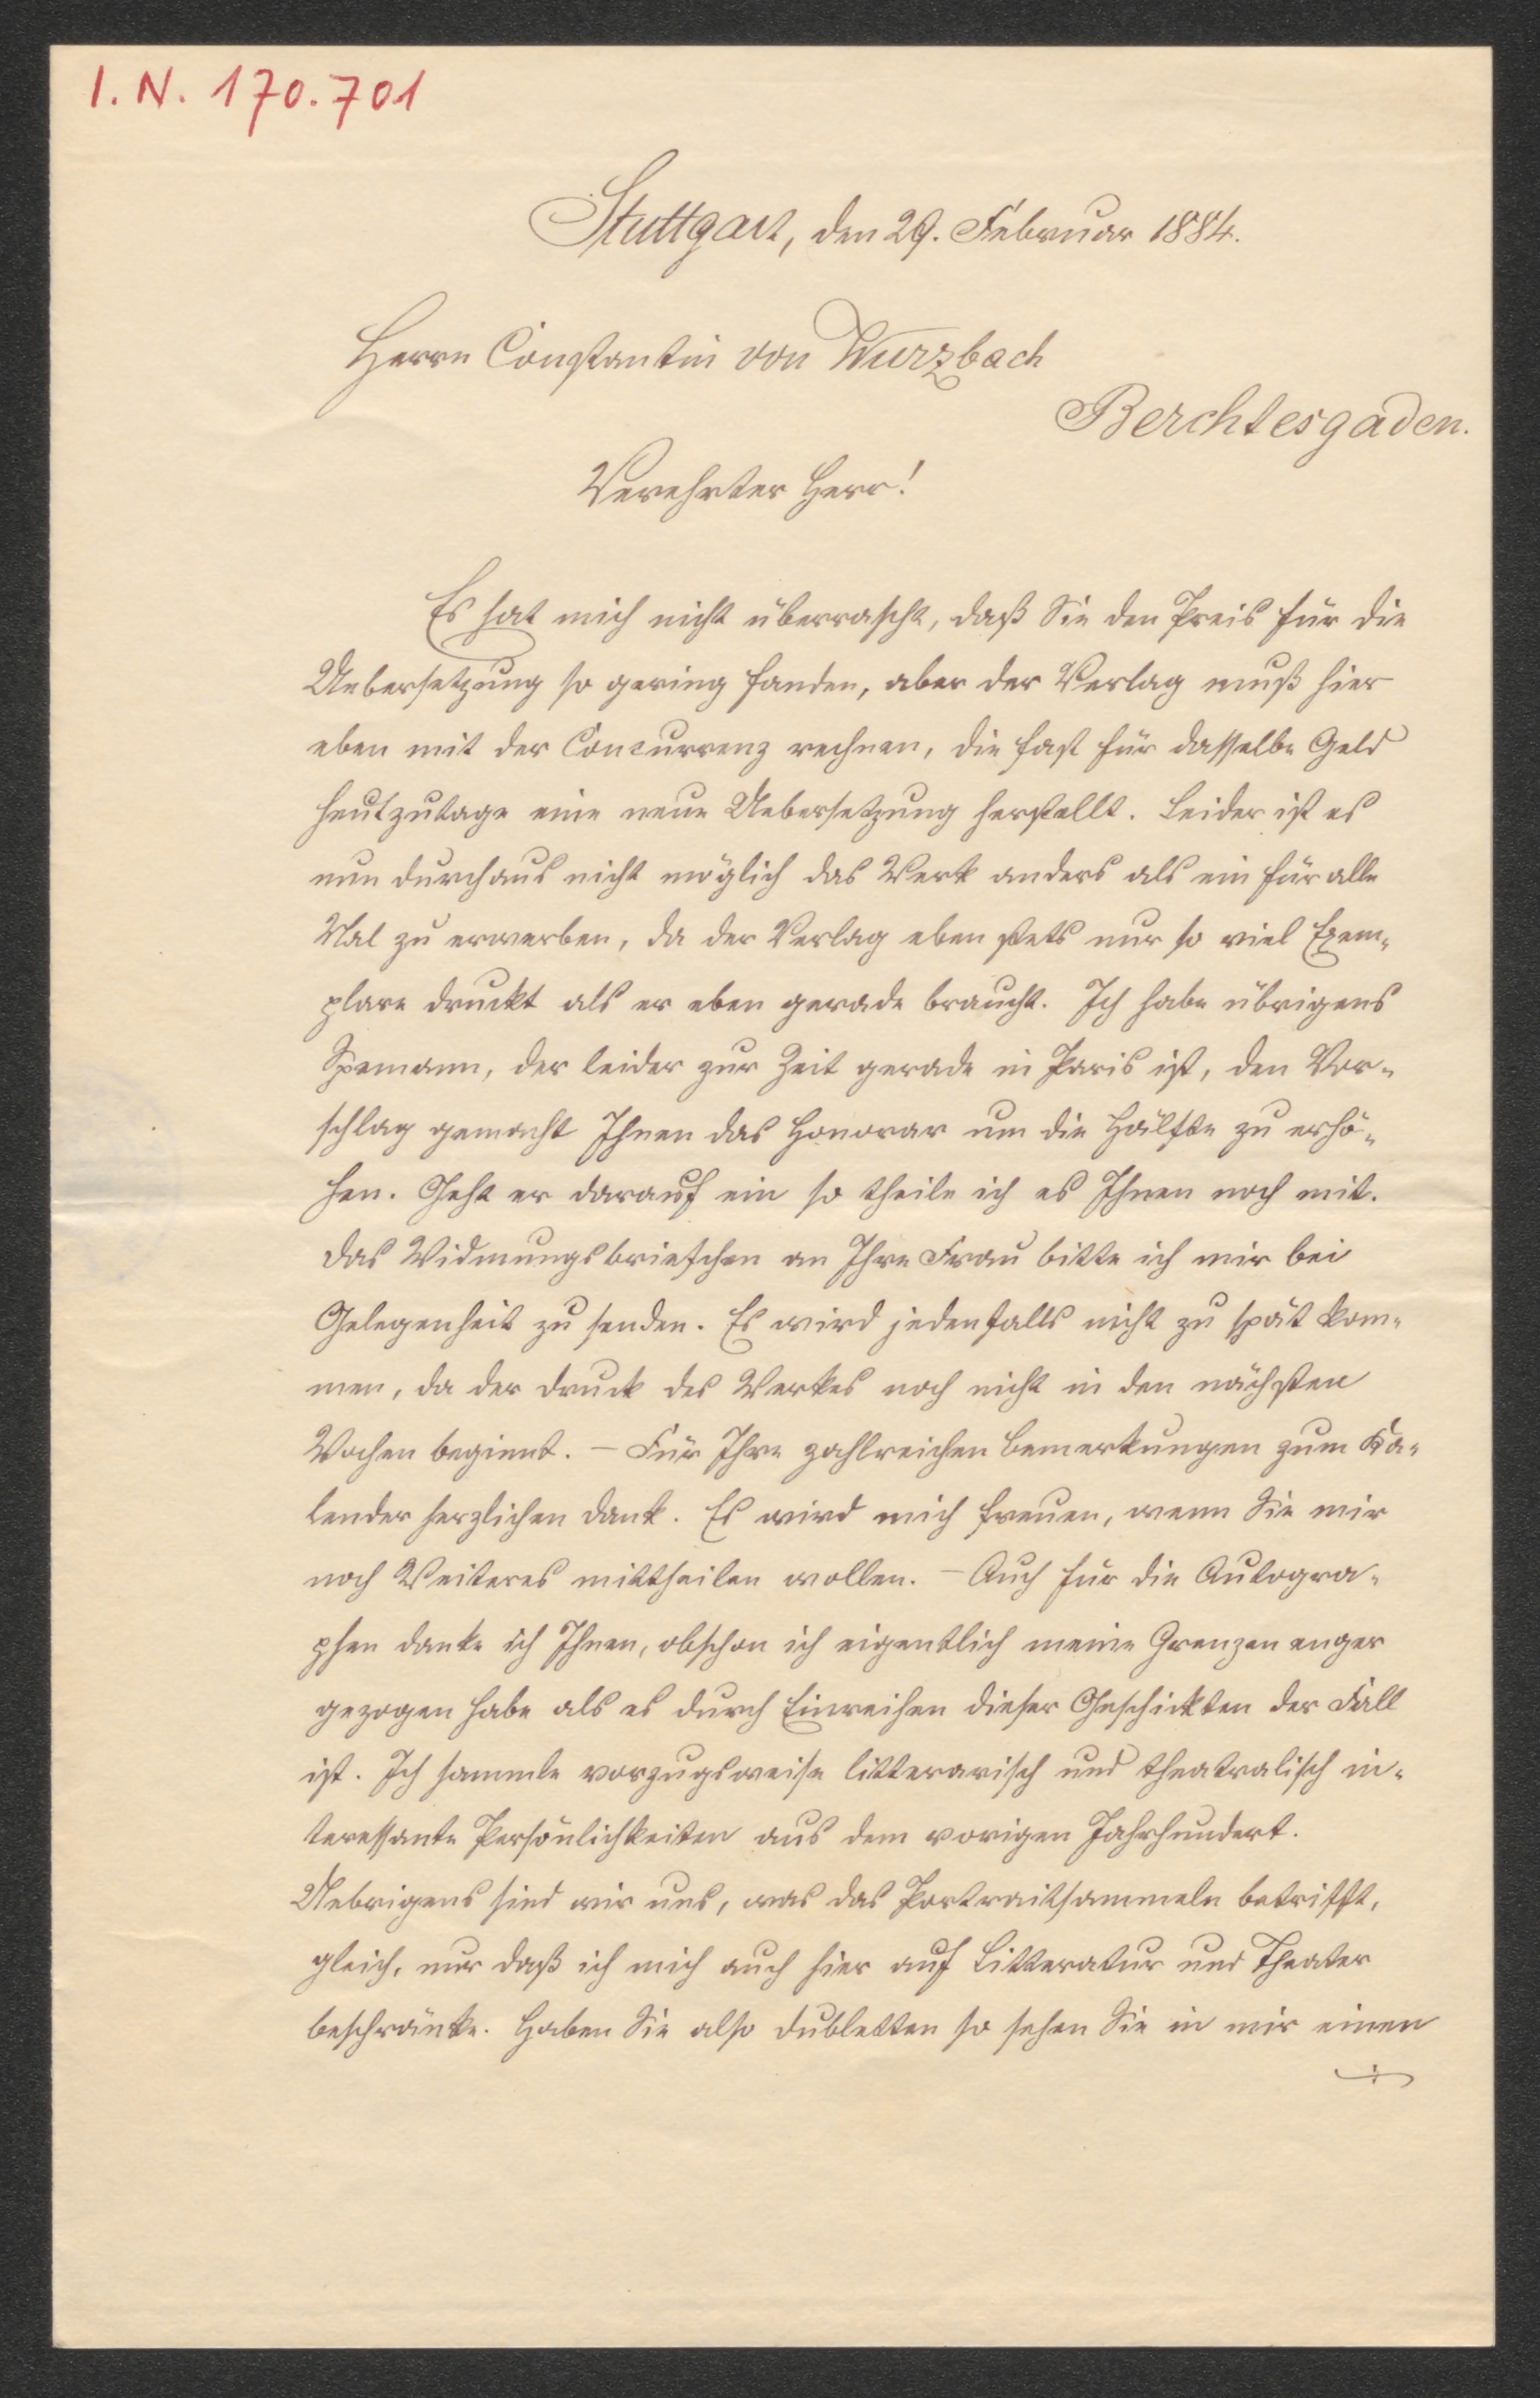 I. N. 170.701
Stuttgart, den 29. Februar 1884.
Herrn Constantin von Wurzbach
Berchtesgaden.
Verehrter Herr!
Es hat mich nicht überrascht, daß Sie den Preis für die
Uebersetzung so gering fanden, aber der Verlag muß hier
eben mit der Concurrenz rechnen, die fast für dasselbe Geld
heutzutage eine neue Uebersetzung herstellt. Leider ist es
nun durchaus nicht möglich das Werk anders als ein für alle
Mal zu erwerben, da der Verlag eben stets nur so viel Exem-
plare druckt als er eben gerade braucht. Ich habe übrigens
Spemann, der leider zur Zeit gerade in Paris ist, den Vor-
schlag gemacht Ihnen das Honorar um die Hälfte zu erhö-
hen. Geht er darauf ein so theile ich es Ihnen noch mit.
Das Widmungsbriefchen an Ihre Frau bitte ich mir bei
Gelegenheit zu senden. Es wird jedenfalls nicht zu spät kom-
men, da der Druck des Werkes noch nicht in den nächsten
Wochen beginnt. – Für Ihre zahlreichen Bemerkungen zum Ka-
lender herzlichen Dank. Es wird mich freuen, wenn Sie mir
noch Weiteres mittheilen wollen. – Auch für die Autogra-
phen danke ich Ihnen, obschon ich eigentlich meine Grenzen enger
gezogen habe als es durch Einreihen dieser Geschickten der Fall
ist. Ich sammle vorzugsweise litterarisch und theatralisch in-
teressante Persönlichkeiten aus dem vorigen Jahrhundert.
Uebrigens sind wir uns, was das Portraitsammeln betrifft,
gleich, nur daß ich mich auch hier auf Litteratur und Theater
beschränke. Haben Sie also Dubletten so sehen Sie in mir einen